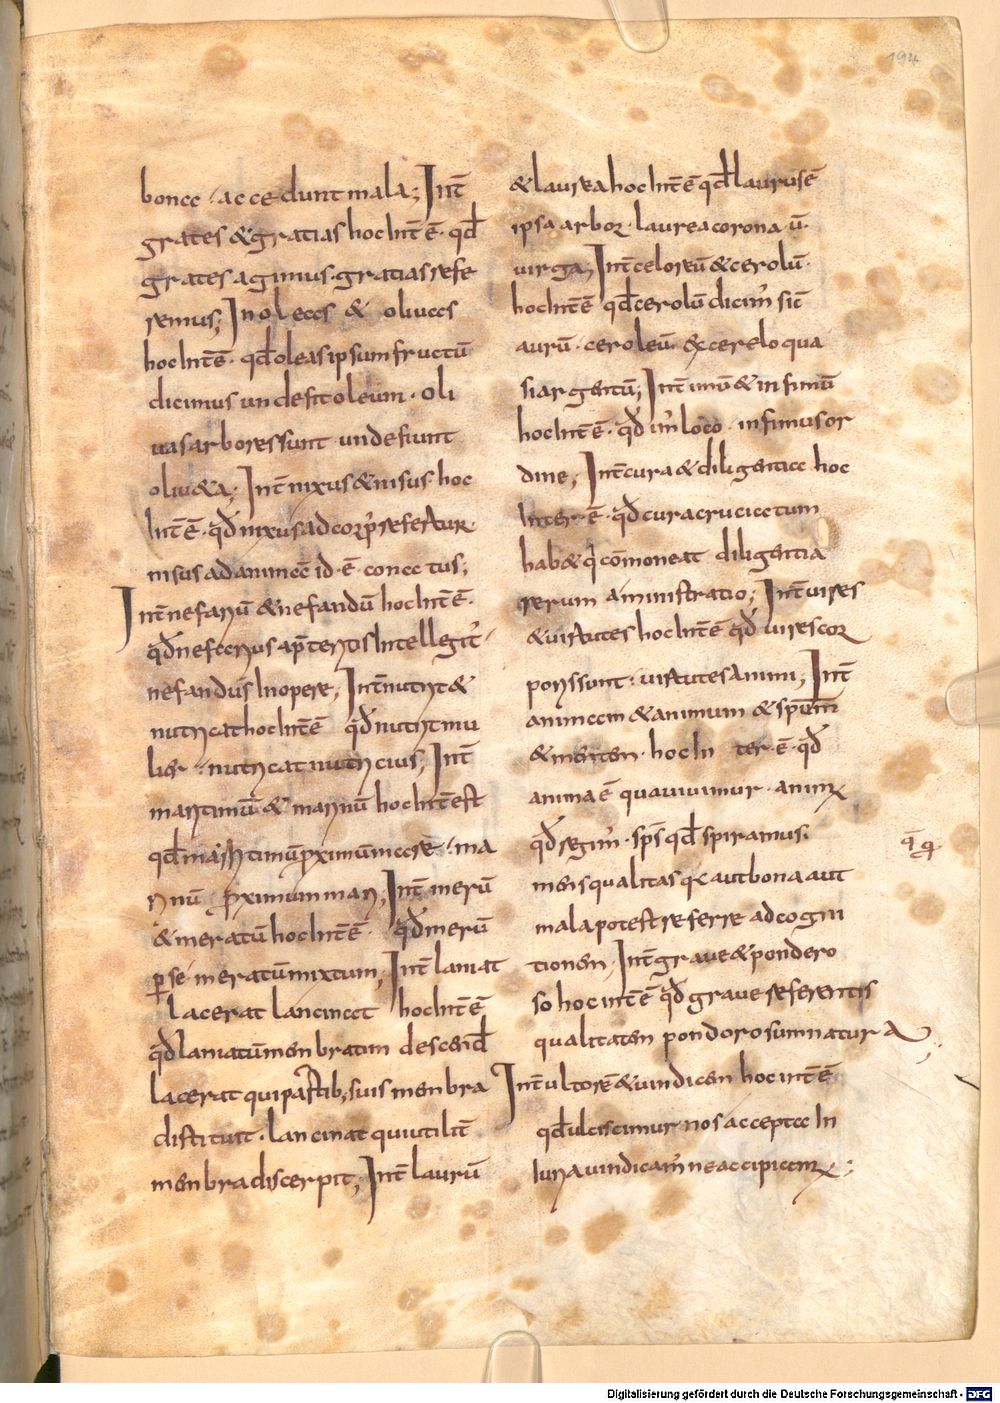 194
bona · accedunt mala; Int̄
grates & gratias hoc Int̄ ē · qđ
grates agimus · gratias refe
remus; In oleas & oliuas
hoc Int̄ ē · qđ oleas ipsum fructū
dicimus unde fit oleum · oli
uas arbores sunt unde fiunt
oliu&a; Int̄ nixus & nisus hoc
Int̄ ē · qđ nixus ad corp̄ refertur
nisus ad animā id · ē · conatus;
Int̄ nefariū & nefandū hoc Int̄ ē ·
qđ nefarius Intellegit᷑
nefandus In opere; Int̄ nutrit &
nutricat hoc Int̄ ē qđ nutrit mu
lier · nutricat nutricius; Int̄
maritimū & marinū hoc Int̄ est
qđ maritimū ꝓximū · ma
rinū ꝓximum mari; Int̄ merū
& meratū hoc Int̄ ē · qđ merū
ꝑ se meratū mixtum; Int̄ laniat
lacerat lancinat hoc Int̄ ē
qđ laniatū menbratim descend̄
lacerat qui partib; suis menbra
distituit · lancinat qui utilit̄
menbra discerpit; Int̄ laurū
& laurea hoc Int̄ ē qđ laurus ē
ipsa arbor · laurea corona ū ·
uirga; Int̄ celoreū & cerolū ·
hoc Int̄ ē qđ cerolū dicim᷑ sic̄
aurū · ceroleū · & cerelo qua
si argentū; Int̄ imū & infimū
hoc Int̄ ē · qđ im᷑ loco · infimus or
dine; Int̄ cura & diligentia hoc
Inter · ē · qđ cura cruciatum
hab& commoneat diligentia
rerum aministratio; Int̄ uires
& uirtutes hoc Int̄ ē qđ uires cor
poris sunt · uirtutes animi; Int̄
animam & animum & spūm
& mentem · hoc In ter · ē · qđ
anima ē qua uiuimur · anim᷑
qđ regim᷑ · sp̄s qđ spiramus ·
mens qualitas q̄ aut bona aut
mala potest referre ad cogni
tionem · Int̄ graue & pondero
so hoc int̄ ē qđ graue referentis
qualitatem pondorosum natura
Int̄ ultorē & uindicen hoc int̄ ē
qđ ulciscimur nos accepta In
Iuria uindicam᷑ ne accipiam᷑ ;
Digitalisierung gefördert durch die Deutsche Forschungsgemeinschaft - DFG